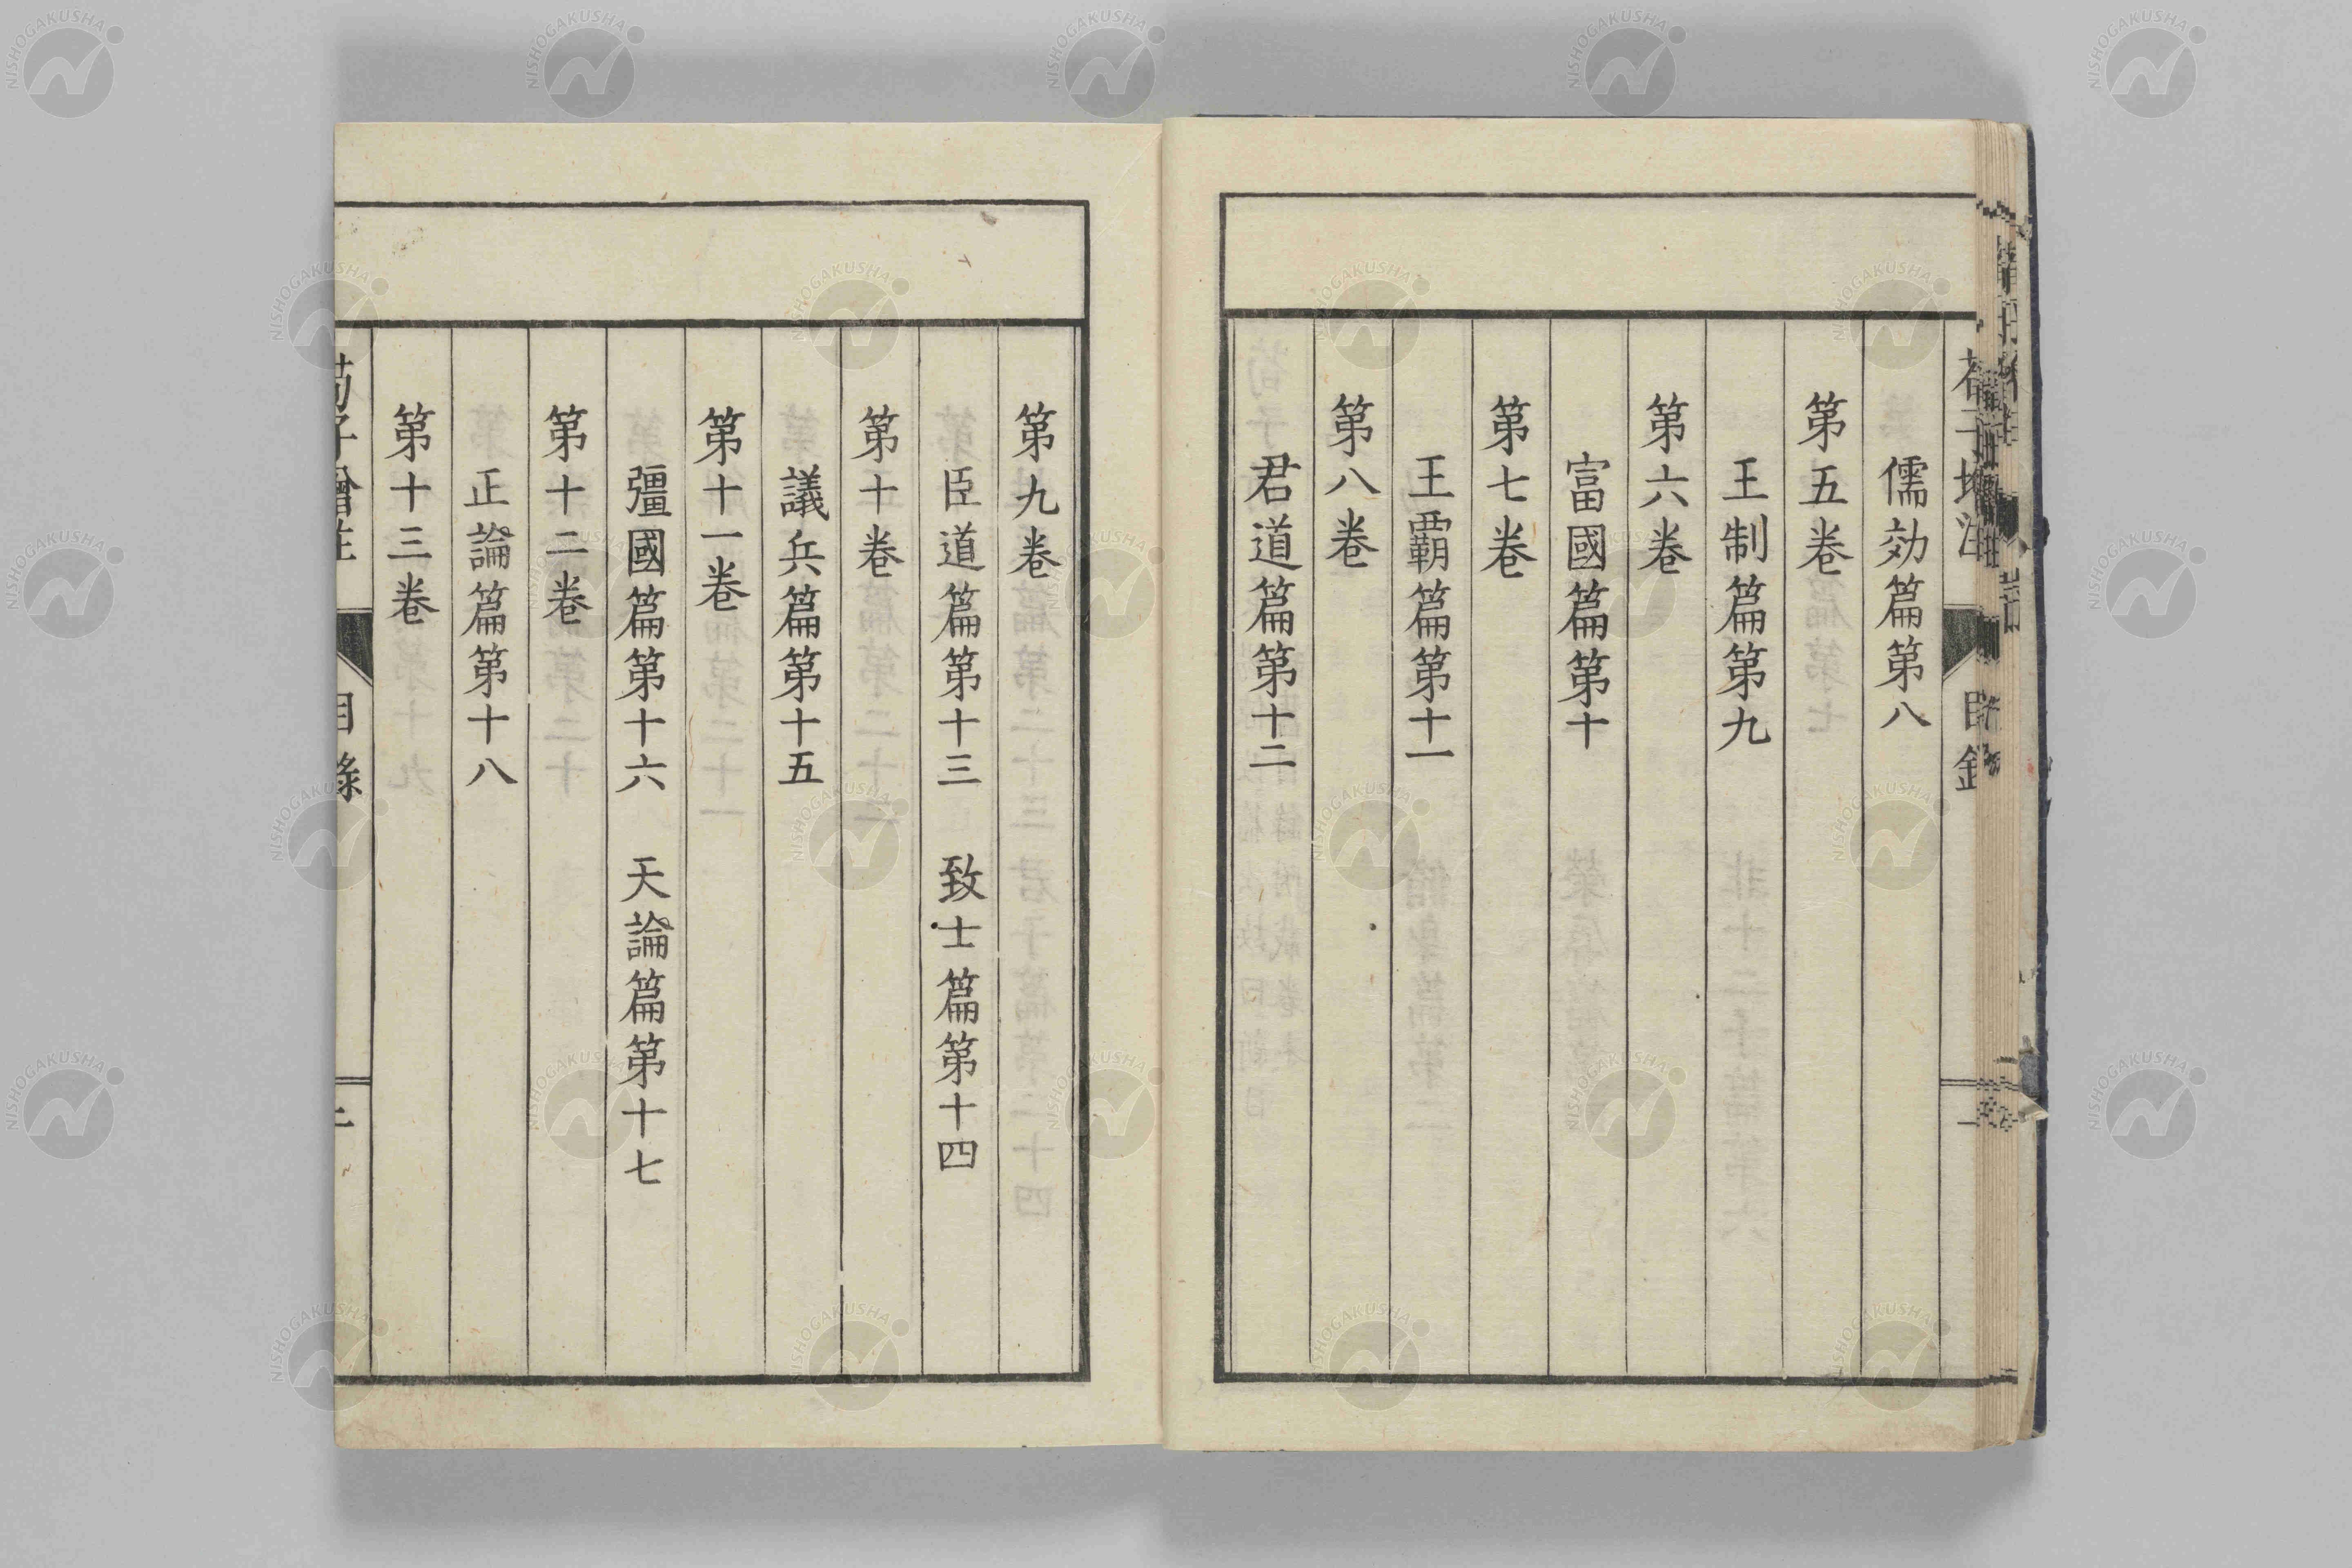 儒効篇第八
第五卷
王制篇第九
第六卷
富國篇第十
第七卷
王覇篇第十一
第八卷
君道篇第十二
第九卷
臣道篇第十三 致士篇第十四
第十卷
議兵篇第十五
第十一卷
彊國篇第十六 天論篇第十七
第十二卷
正論篇第十八
第十三卷
荀子增注 目錄 二
NISHOGAKUSHA